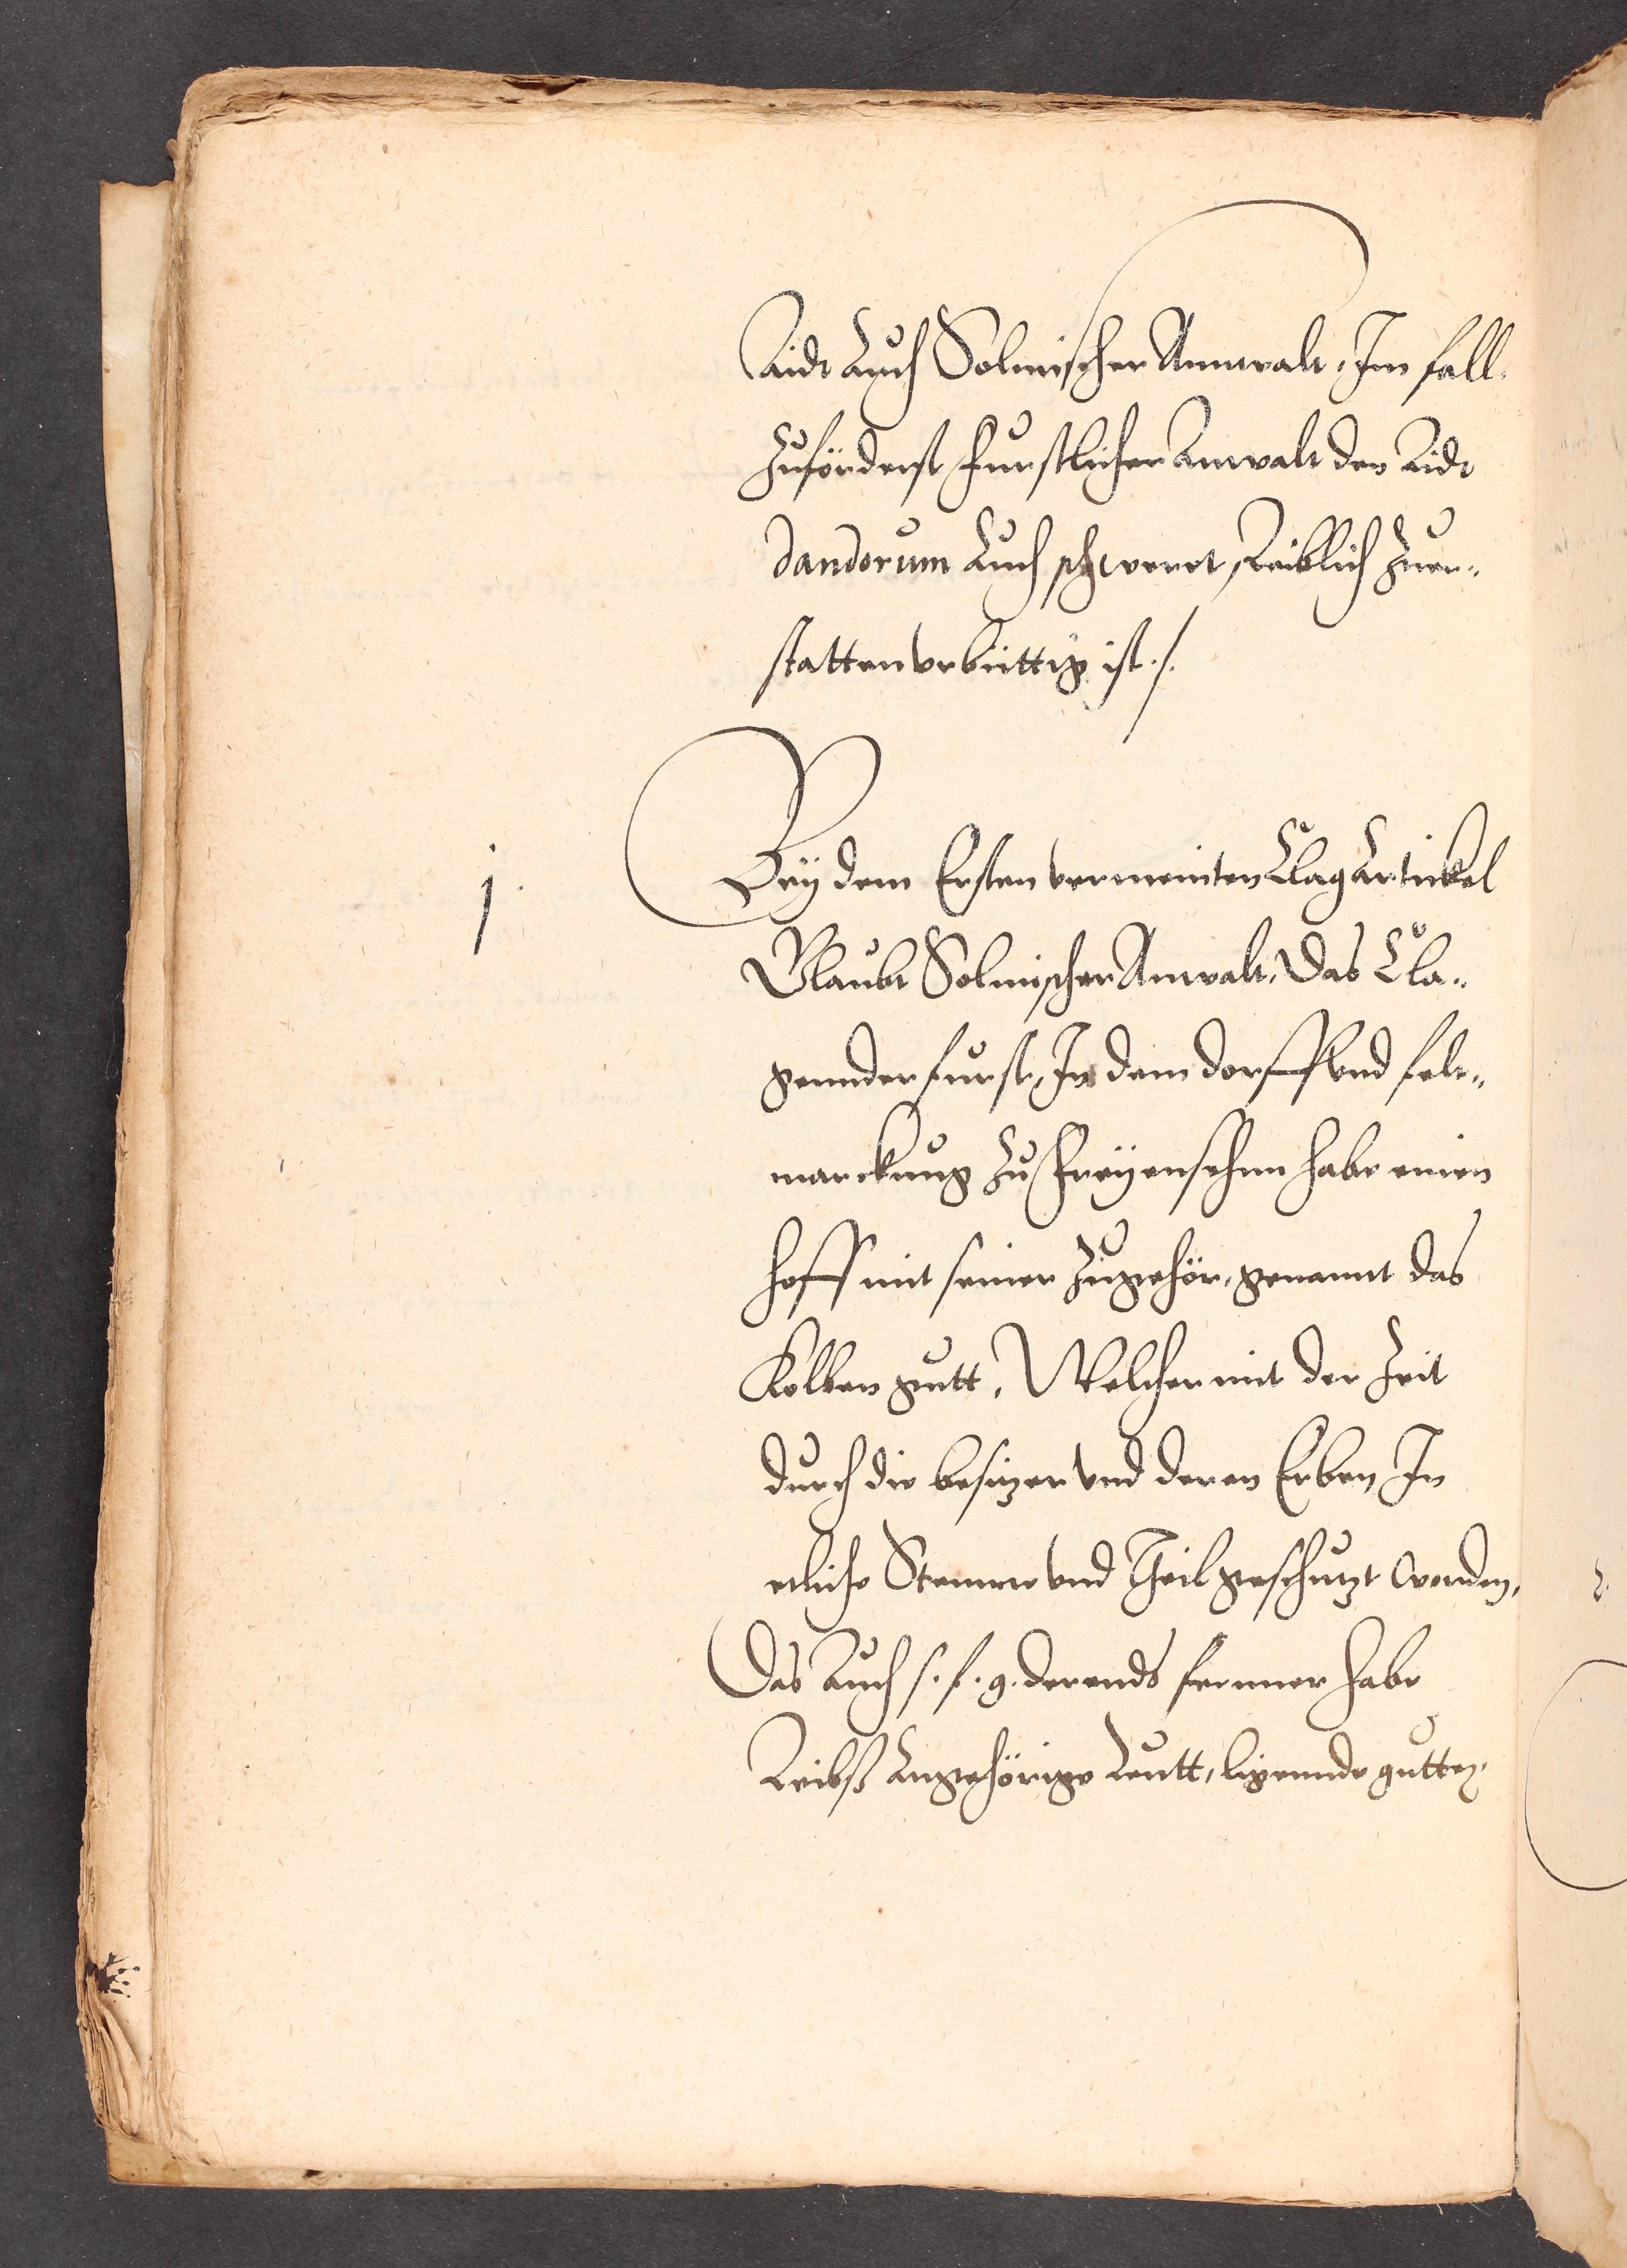 Aidt Auch Solmischer Annwalt, Im fall
Zuförderst Furstlicher Anwalt den Aidt
dandorum Auch schweret, Leiblich zuer„
statten urbüttig ist ./.
j. Bey dem Ersten vermeinten Clag Artickel
Glaubt Solmischer Anwalt, Das Cla„
gennder furst, In dem dorff vnd felt„
marckung zu Freyensehnn habe einen
hoff mit seiner Zugehör, genannt das
Kolben gutt, Welcher mit der Zeit
durch die besitzer vnd deren Erben In
etliche Stemme vnd Theil geschutzt worden,
Das Auch s. f. g. derends fernner habe
Leibß Angehörige Leutt, ligennde gutter,